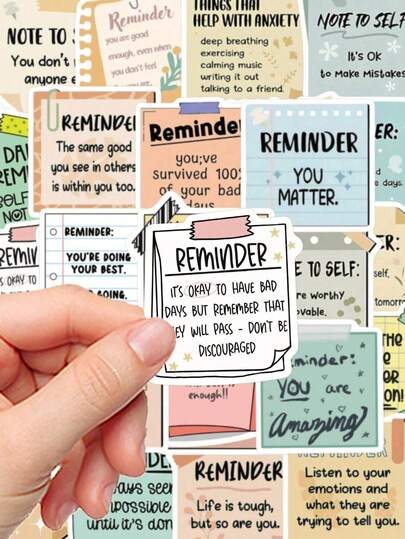 Reminder
you are good
enough, even when
you don't feel
THINGS THAT
HELP WITH ANXIETY
deep breathing
exercising
calming music
writing it out
talking to a friend.
NOTE TO SELF
It's Ok
to Make Mistakes
NOTE TO
You don't
anyone
REMINDER
The same good
you see in others
is within you too.
Reminder
you;ve
survived 100%
of your bad
days
REMINDER
YOU
MATTER.
days.
REMINDER:
YOU'RE DOING
YOUR BEST.
GOING.
REMINDER
IT'S OKAY TO HAVE BAD
DAYS BUT REMEMBER THAT
THEY WILL PASS - DON'T BE
DISCOURAGED
TO SELF:
worthy
lovable.
self,
enough!!
Reminder:
YOU are
Amazing
until it's done
REMINDER
Life is tough,
but so are you.
Listen to your
emotions and
what they are
trying to tell you.